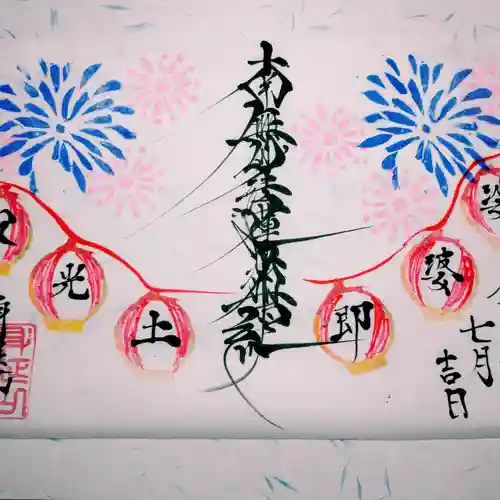 七月
吉日
娑
婆
即
南無妙法蓮華経
土
光